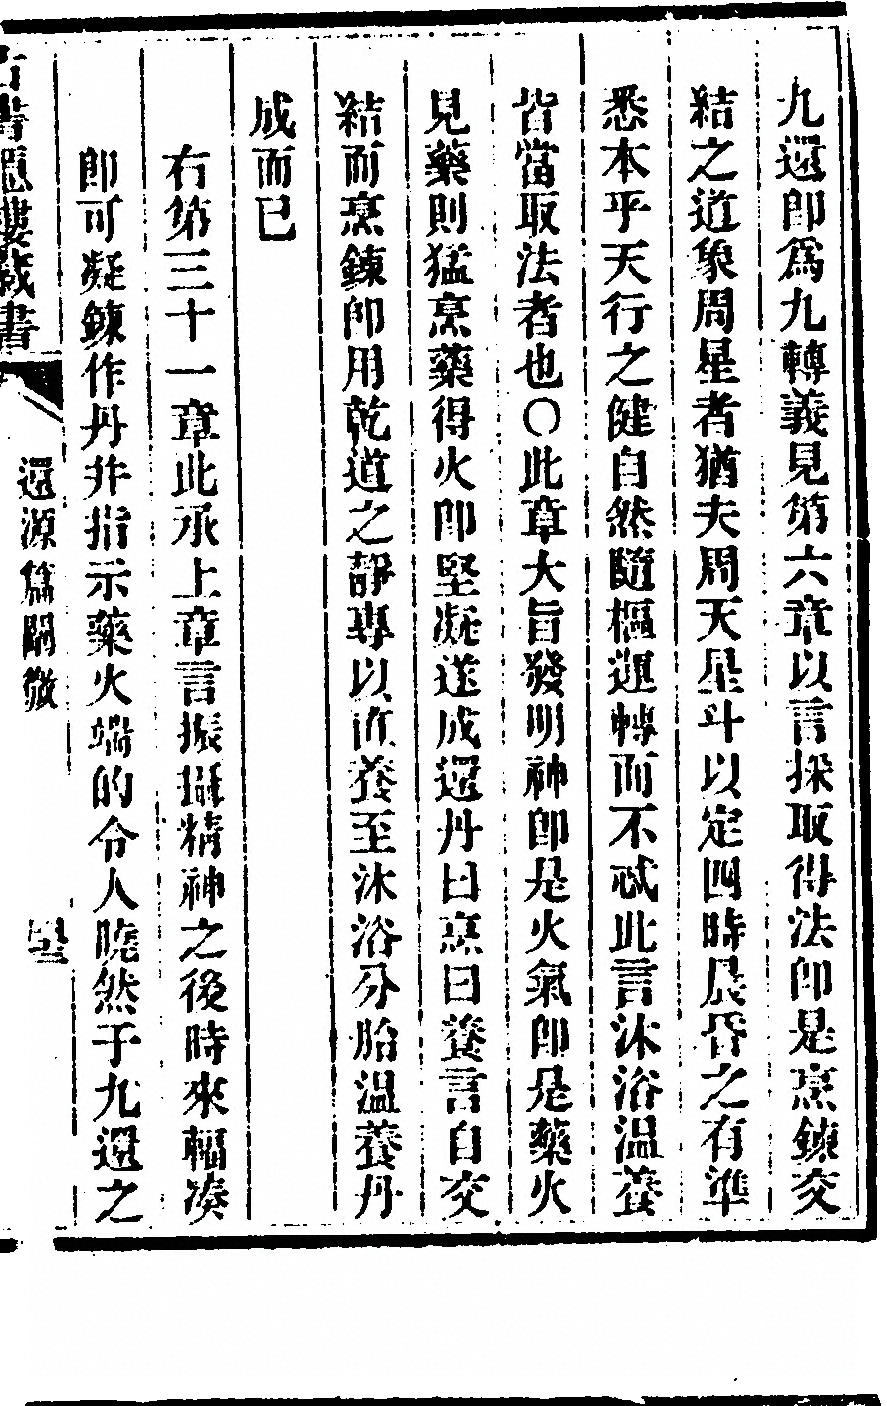 九還即爲九轉義見第六章以言採取得法即是烹鍊交
結之道象周星者猶夫周天星斗以定四時晨昏之有準
悉本乎天行之健自然隨樞運轉而不忒此言沐浴温養
皆當取法者也○此章大旨發明神即是火氣即是藥火
見藥則猛烹藥得火即堅凝遂成還丹曰烹曰養言自交
結而烹鍊即用乾道之靜專以直養至沐浴分胎温養丹
成而已
右第三十一章此承上章言振攝精神之後時來輻湊
即可凝鍊作丹并指示藥火端的令人曉然于九還之
古書隱樓藏書
還源篇闡微